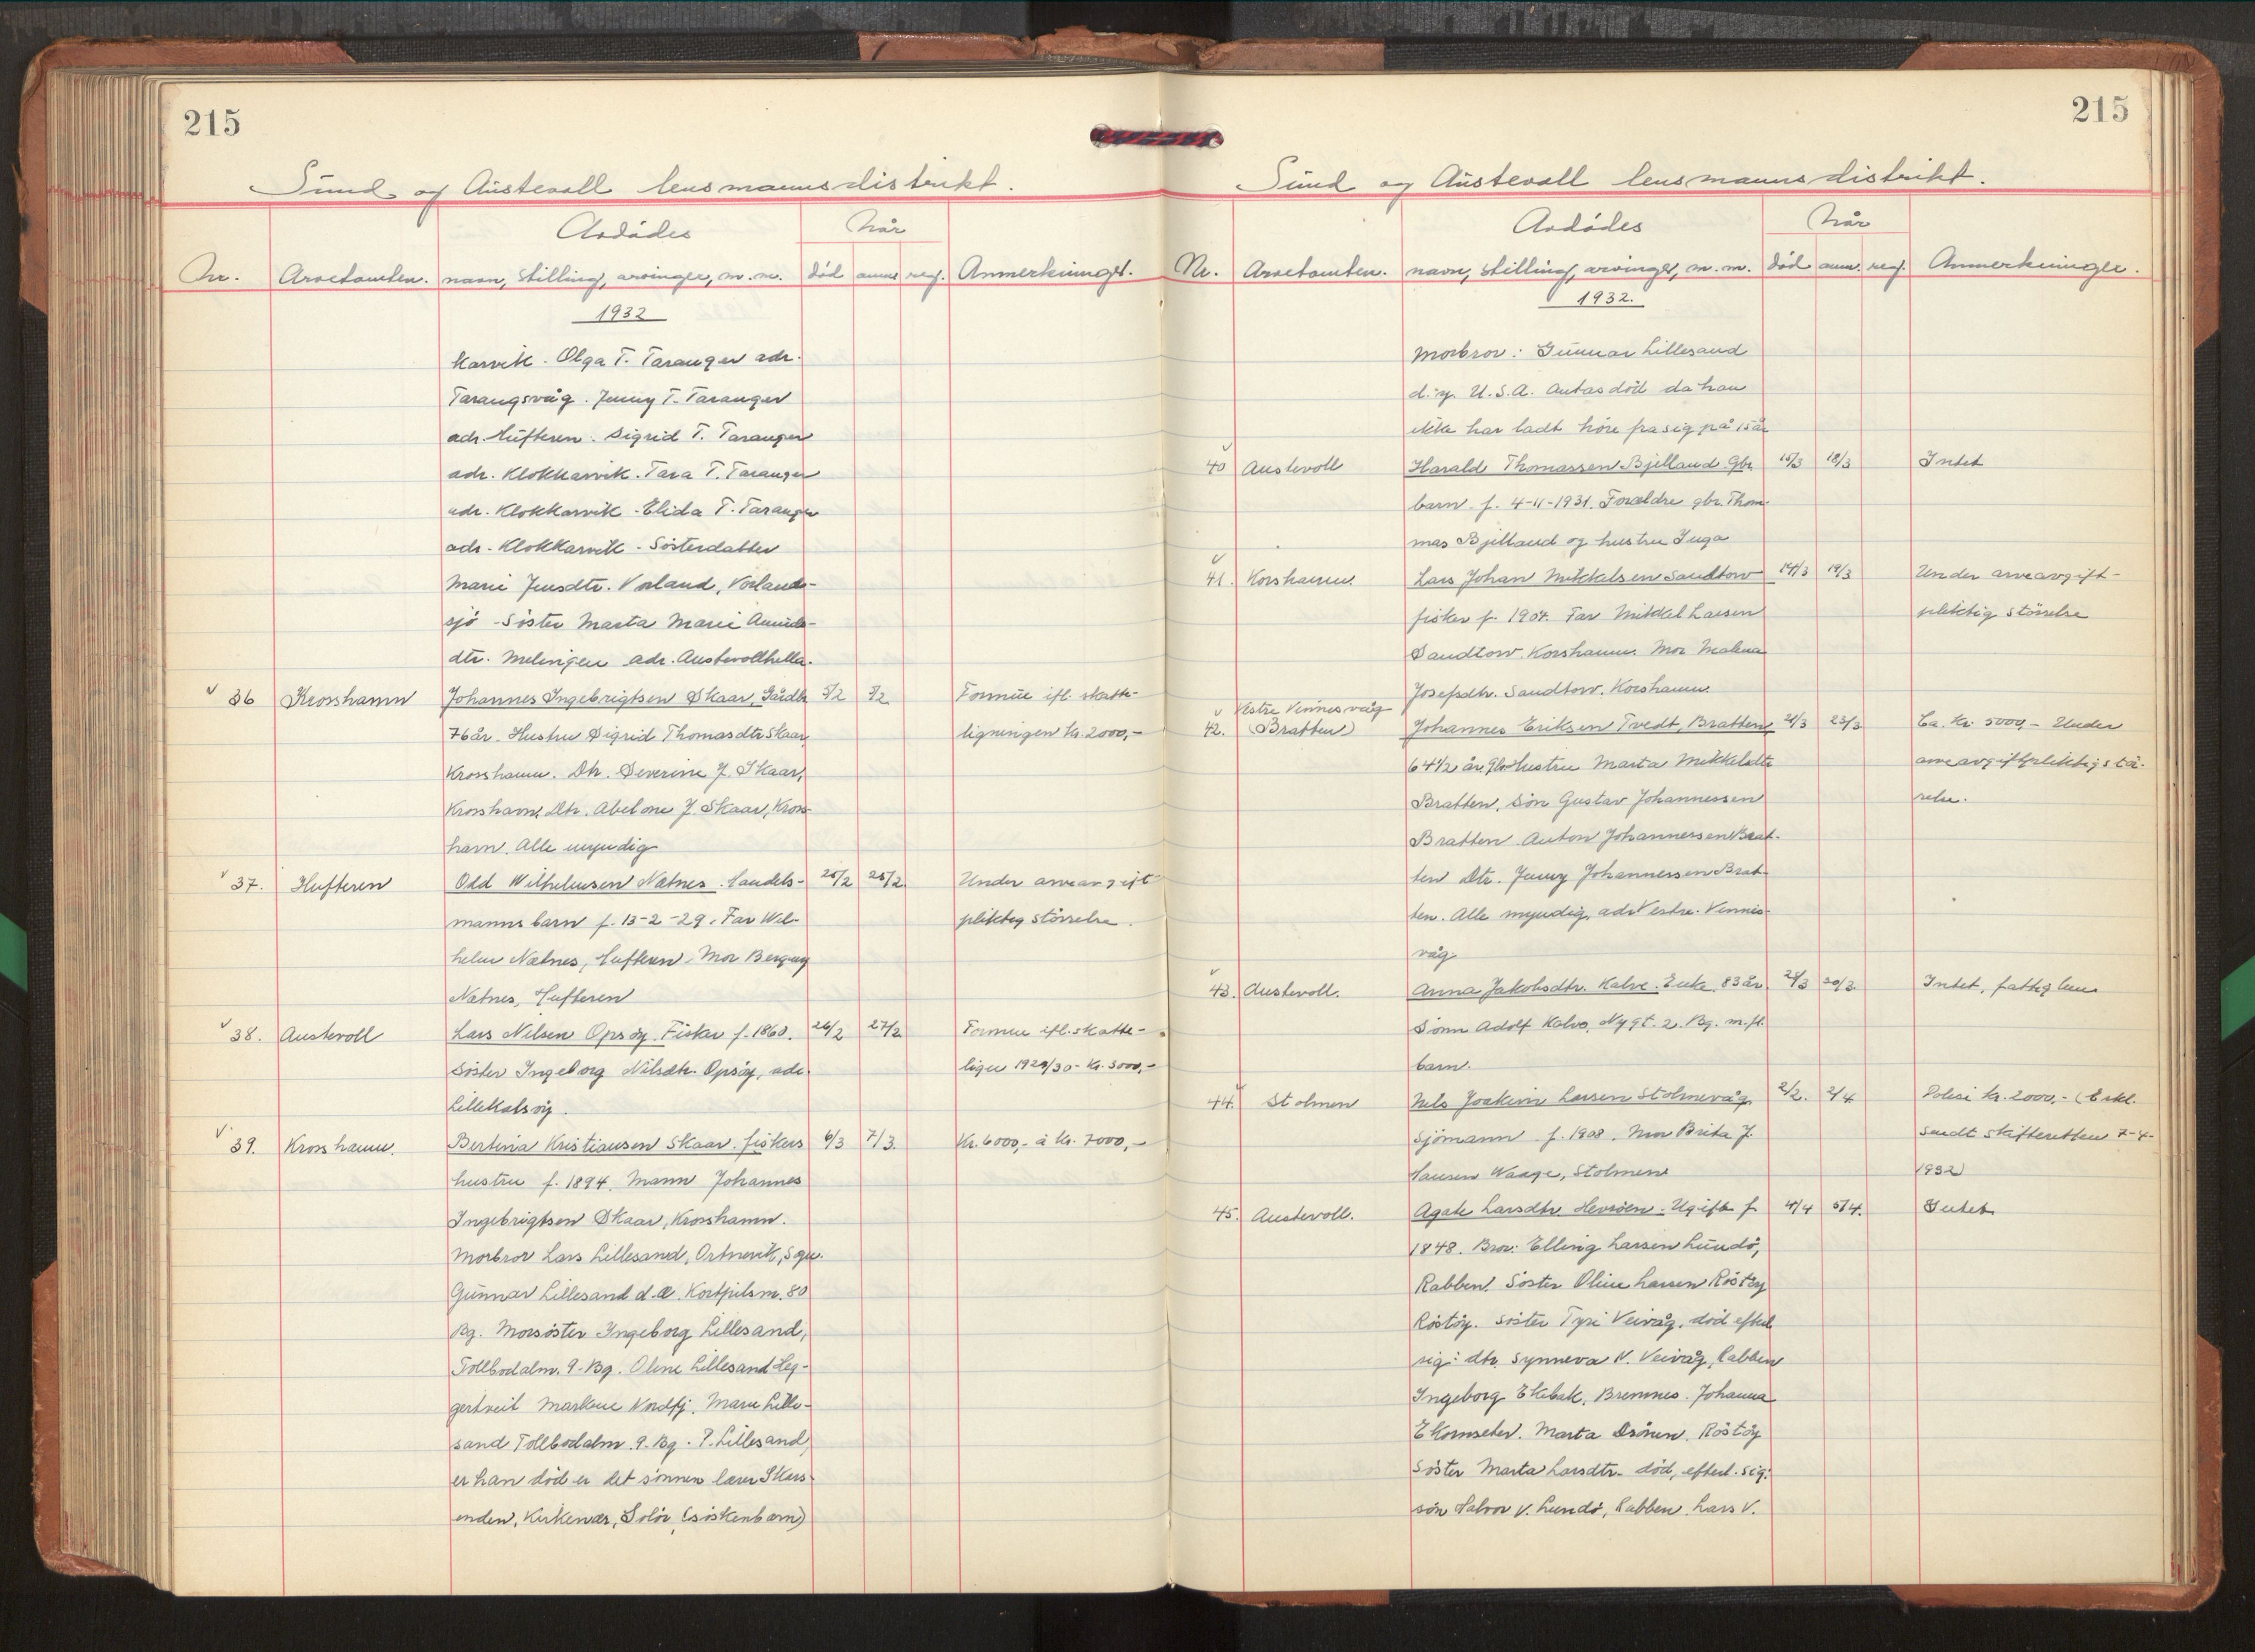 215
Sund og Austevoll lensmannsdistrikt.
Avdødes
Når
Nr. Arvetomten. navn, stilling, arvinger, m. m. død anm. reg. Anmerkninger.
1932
karvik. Olga T. Taranger adr.
Tarangsvåg. Jenny T. Taranger
adr. Hufteren. Sigrid T. Taranger
adr. Klokkarvik. Tara T. Taranger
adr. Klokkarvik. Elida T. Taranger
adr. Klokkarvik. Søsterdatter
Marie Jensdtr. Vorland, Vorland-
sjø. Søster Marta Marie
dtr. Melingen adr. Austevollhella.
36 Krosshamn Johannes Ingebrigtsen Skaar, Gårdbr. /2 /2 Formue ifl. skatte-
76 år. Hustru Sigrid Thomasdtr Skaar, ligningen kr. 2000,-
Krosshamn. Dtr. Severine J. Skaar,
Krosshavn, Dtr. Abelone J. Skaar, Kross-
havn. Alle myndig
37. Hufteren Odd Wilhelmsen Natnes. Handels- 25/2 25/2. Under arveavgift
manns barn f. 13-2-29. Far Wil- pliktig størrelse.
helm Natnes, Hufteren. Mor Bergny
Natnes, Hufteren
38. Austevoll Lars Nilsen Opsøy. Fisker f. 1860. 26/2 27/2 Formue ifl. skatte-
Søster Ingeborg Nilsdtr. Opsøy, adr. lign 1929/30 - Kr. 3000,-
Lillekalsøy.
39. Krosshamn. Bertina Kristiansen Skaar. fiskers 6/3 7/3. Kr. 6000,- à kr. 7000,-
hustru f. 1894. Mann Johannes
Ingebrigtsen Skaar, Krosshamn.
Morbror Lars Lillesand, Ortnevik, Sogn.
Gunnar Lillesand d.e. 80
Bg. Morsøster Ingeborg Lillesand,
Tollbodalm. 9. Bg. Oline Lillesand Leg-
gertveit Markene Nordfj. Marie Lille-
sand Tollbodalm. 9. Bg. P. Lillesand,
er han død er det sønnen lærer
enden, Kirkenær, Solør (søskenbarn)
215
Sund og Austevoll lensmannsdistrikt.
Avdødes
Når
Nr. Arvetomten. navn, stilling, arvinger, m. m. død anm. reg. Anmerkninger.
1932.
Morbror: Gunnar Lillesand
d.y. U.S.A. Antas død da han
ikke har ladt høre fra sig på 15 år
40 Austevoll Harald Thomassen Bjelland. Gbr. 15/3 18/3 Intet
barn f. 4-11-1931. Foreldre gbr. Thom-
mas Bjelland og hustru Inga
41. Korshamn. Lars Johan Mikkelsen Sandtorv 14/3 19/3 Under arveavgift-
fisker f. 1904. Far Mikkel Larsen pliktig størrelse
Sandtorv. Korshamn. Mor Malena
Josefsdtr. Sandtorv. Korshamn.
Vestre Vinnesvåg
42. (Bratten) Johannes Eriksen Tvedt, Bratten 21/3 23/3 Ca. kr. 5000,- Under
64 1/2 år. Gbr. Hustru Marta Mikkelsdtr arveavgiftpliktig stø-
Bratten, Søn Gustav Johannessen relse.
Bratten Anton Johannessen Brat-
ten Dtr. Jenny Johannessen Brat-
ten. Alle myndig, adr Vestre. Vinnes-
våg.
43. Austevoll. Anna Jakobsdtr. Kalve. Enke 83 år. /3 30/3 Intet, fattiglem
Sønn Adolf Kalve, Nygt. 2. Bg. m. fl.
barn.
44. Stolmen Nils Joakim Larsen Stolmevåg. 2/2. 2/4 Polise kr. 2000,- (Erkl.
Sjømann f. 1908. Mor Brita J. sendt skifteretten 7-4-
Hansen Waage, Stolmen 1932)
45. Austevoll. Agate Larsdtr. Hevrøen. Ugift f. 4/4 5/4. Intet
1848. Bror: Elling Larsen Lundø,
Rabben. Søster Oline Larsen Røstøy
Røstøy. Søster Tyri Veivåg, død efterl.
sig: dtr. Synneva N. Veivåg, Rabben
Ingeborg Ekebak, Bremnes. Johanna
E Kornseter. Marta Drønen. Røstøy
Søster Marta Larsdtr. død, efterl. sig:
søn Halvor V. Lundø, Rabben. Lars V.